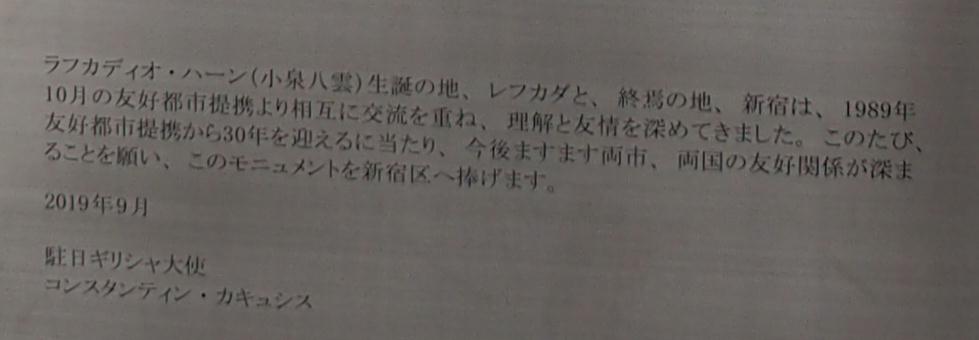 ラフカディオ・ハーン(小泉八雲)生誕の地、レフカダと、終焉の地、新宿は、1989年
10月の友好都市提携より相互に交流を重ね、理解と友情を深めてきました。このたび、
友好都市提携から30年を迎えるに当たり、今後ますます両市、両国の友好関係が深ま
ることを願い、このモニュメントを新宿区へ捧げます。
2019年9月
駐日ギリシャ大使
コンスタンティン・カキュシス